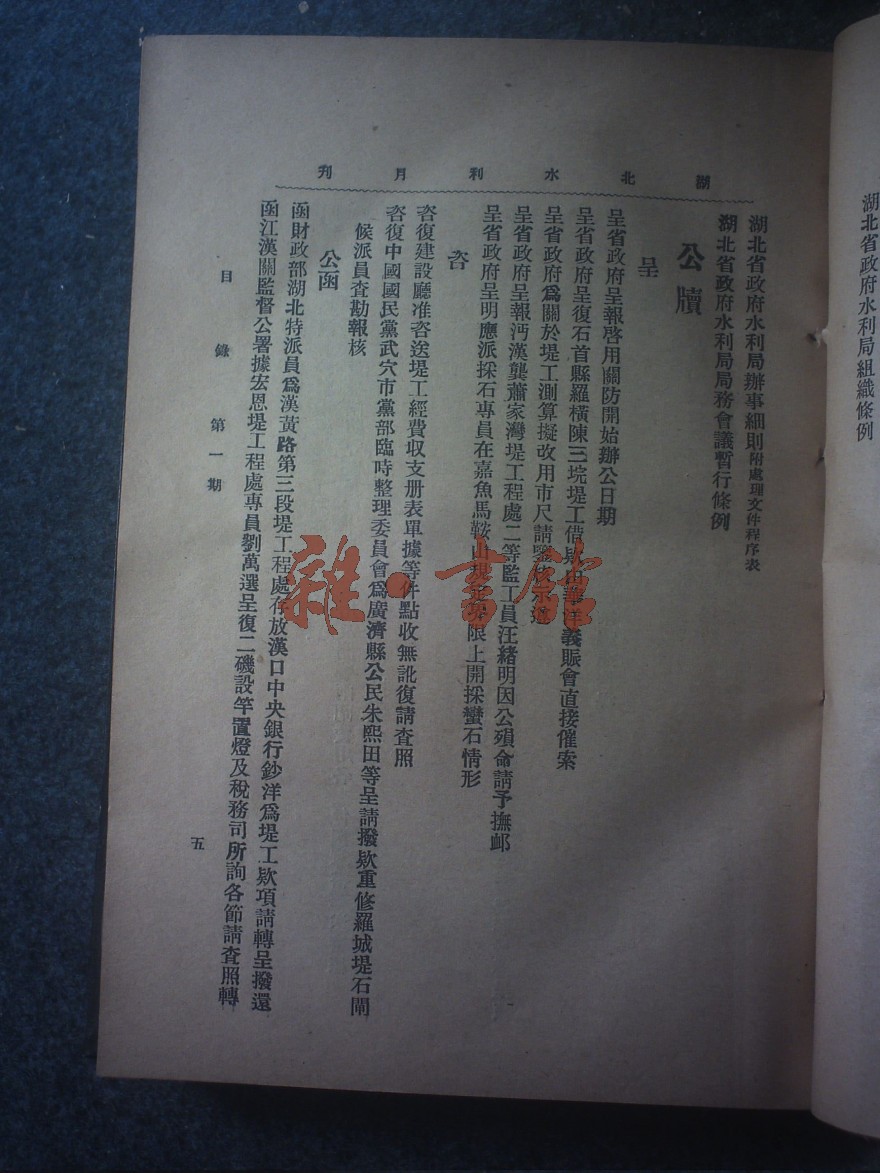 湖北省政府水利局組織條例
湖北水利月刊
湖北省政府水利局辦事細則附處理文件程序表
湖北省政府水利局局務會議暫行條例
公牘
呈
呈省政府呈報啓用關防開始辦公日期
呈省政府呈復石首縣羅橫陳三垸堤工借欵由華洋義賑會直接催索
呈省政府爲關於堤工測算擬改用市尺請鑒核示遵
呈省政府呈報沔漢龔蕭家灣堤工程處二等監工員汪緒明因公殞命請予撫邺
呈省政府呈明應派採石專員在嘉魚馬鞍山界限上開採蠻石情形
咨
咨復建設廳准咨送堤工經費収支册表單據等件點收無訛復請查照
咨復中國國民黨武穴市黨部臨時整理委員會爲廣濟縣公民朱熙田等呈請撥欵重修羅城堤石閘
候派員查勘報核
公函
函財政部湖北特派員爲漢黃路第三段堤工程處存放漢口中央銀行鈔洋爲堤工欵項請轉呈撥還
函江漢關監督公署據宏恩堤工程處專員劉萬選呈復二磯設竿置燈及稅務司所詢各節請查照轉
目錄 第一期
五
雜·書館